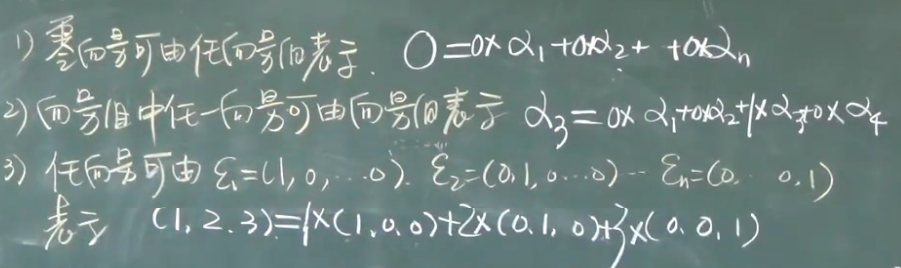 1) 零向量可由任向量组表示. 0=0×α₁+0×α₂+ +0×αₙ
2) 向量组中任一向量可由向量组表示 α₃=0×α₁+0×α₂+1×α₃+0×α₄
3) 任向量可由 ε₁=(1,0,…0). ε₂=(0,1,0…0)…εₙ=(0. 0.1)
表示 (1.2.3)=1×(1.0.0)+2×(0.1.0)+3×(0.0.1)